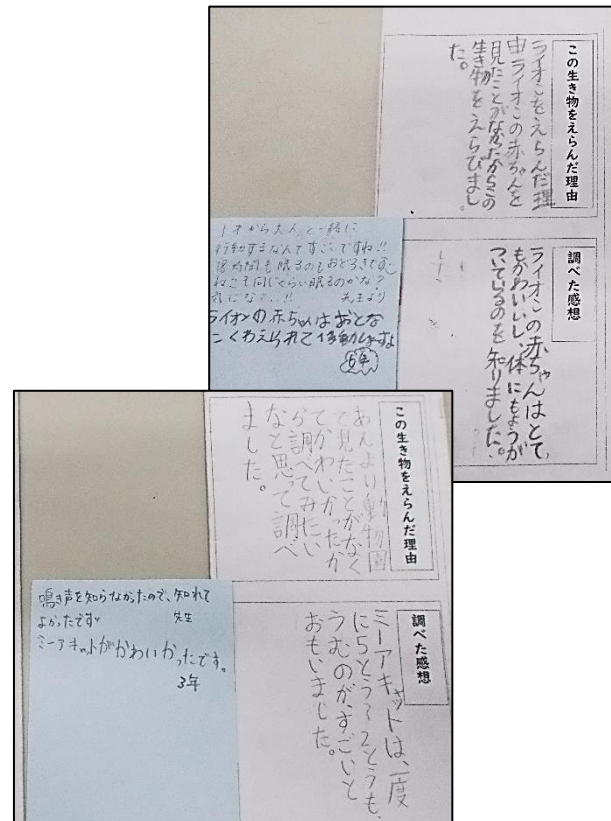 この生き物をえらんだ理由
ライオンをえらんだ理
由ライオンの赤ちゃんを
見たことがなかったからこの
生き物をえらびまし
た。
調べた感想
ライオンの赤ちゃんはとて
もかわいいし、体にもようが
ついているのを知りました。
1才から大人と一緒に
行動するなんてすごいですね!!
18時間も眠るのもおどろきです。
ねこも同じくらい眠るのかな?
気になる!! 先生より
ライオンの赤ちゃんはおとな
にくわえられて移動しますよ
6年
この生き物をえらんだ理由
あんまり動物園
て見たことがなく
てかわいかったか
ら調べてみたい
なと思って調べ
ました。
調べた感想
ミーアキャットは、一度
に5とう
うむのが、すごいと
おもいました。
鳴き声を知らなかったので、知れて
よかったです 先生
ミーアキャットがかわいかったです。
3年